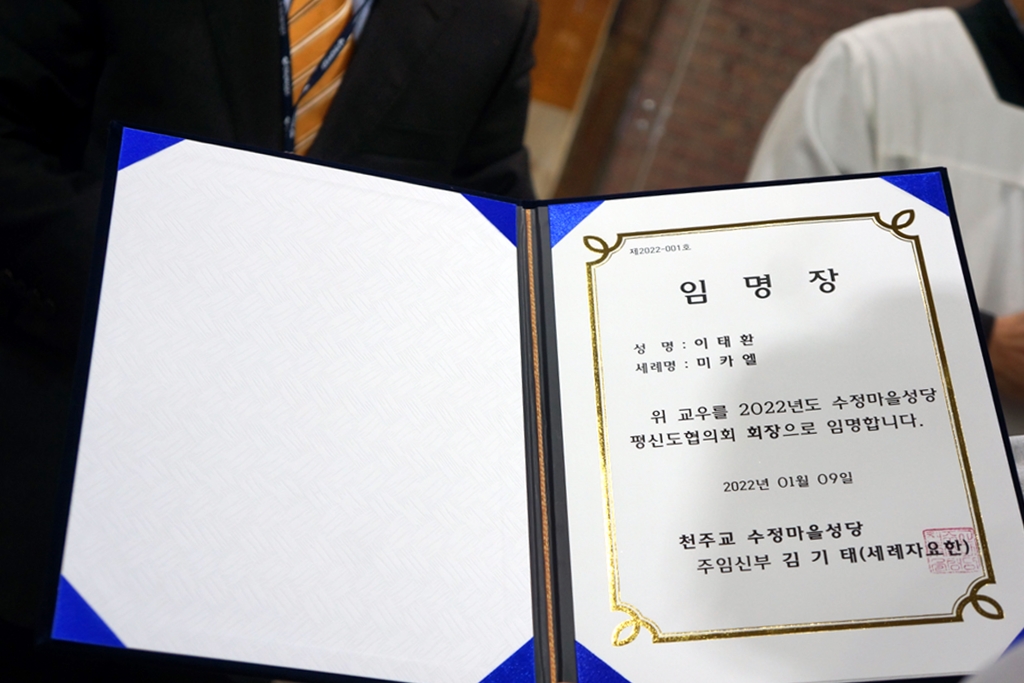 제2022-001호
임 명 장
성 명 : 이 태 환
세례명 : 미 카 엘
위 교우를 2022년도 수정마을성당
평신도협의회 회장으로 임명합니다.
2022년 01월 09일
천주교 수정마을성당
주임신부 김 기 태(세례자요한)